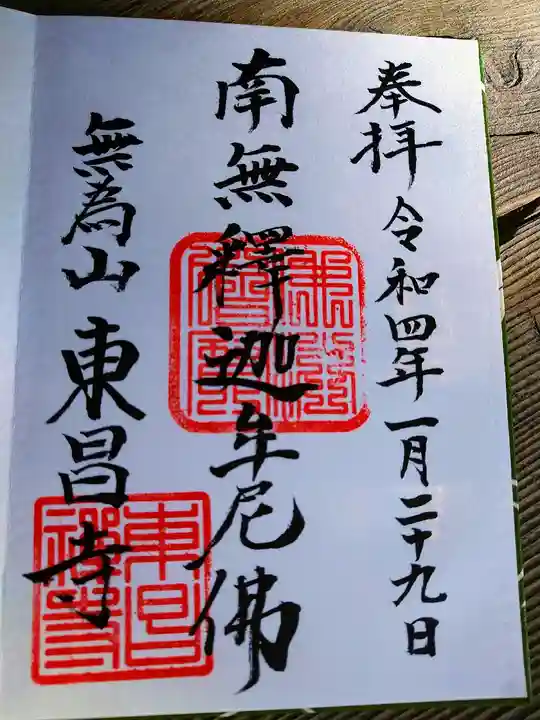 奉拝 令和四年一月二十九日
南無釋迦牟尼佛
無為山 東昌寺
東昌禅寺